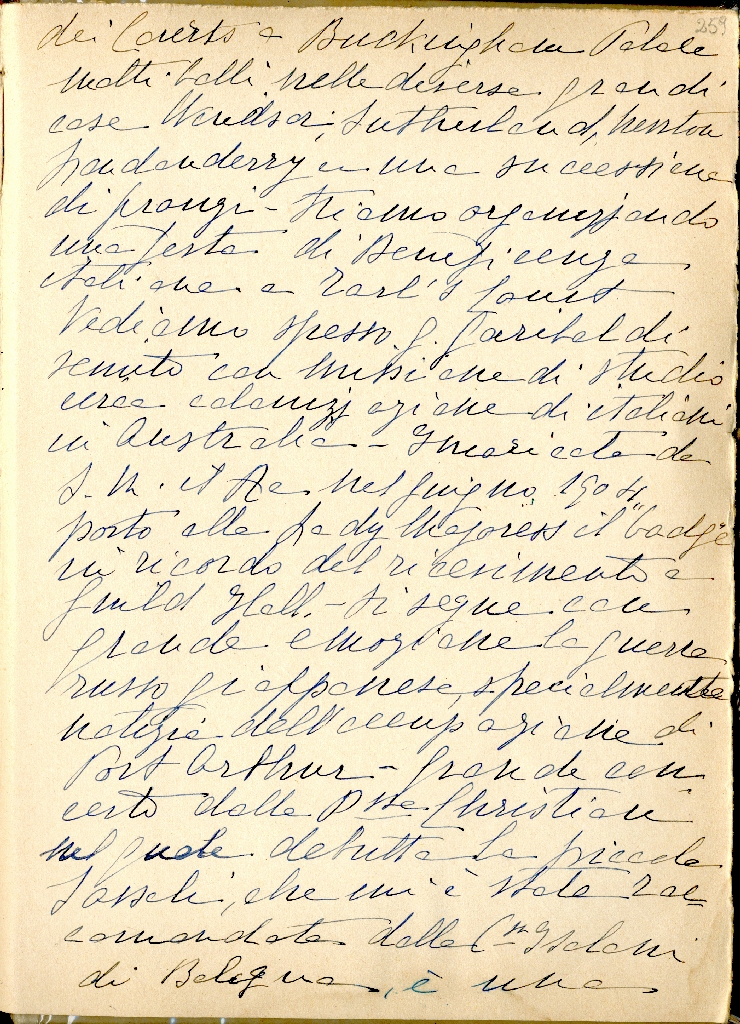 259
dei Courts a Buckingham Palace
molti balli nelle diverse grandi
case Windsor, Sutherland, Newton
Londonderry e una successione
di pranzi - Stiamo organizzando
una festa di Beneficenza
italiana a Earl's Court
Vediamo spesso g. Garibaldi
venuto con missione di studio
circa colonizzazione di italiani
in Australia - Incaricata da
S. M. il Re nel giugno 1904
porto alla Lady Mayoress il "badge"
in ricordo del ricevimento a
Guild Hall. - Si segue con
grande emozione la guerra
russo giapponese, specialmente
notizie dell'occupazione di
Port Arthur - Grande con
certo dalla Pssa Christian
nel quale debutta la piccola
che mi è stata rac=
comandata dalla Cssa Isolani
di Bologna, è una